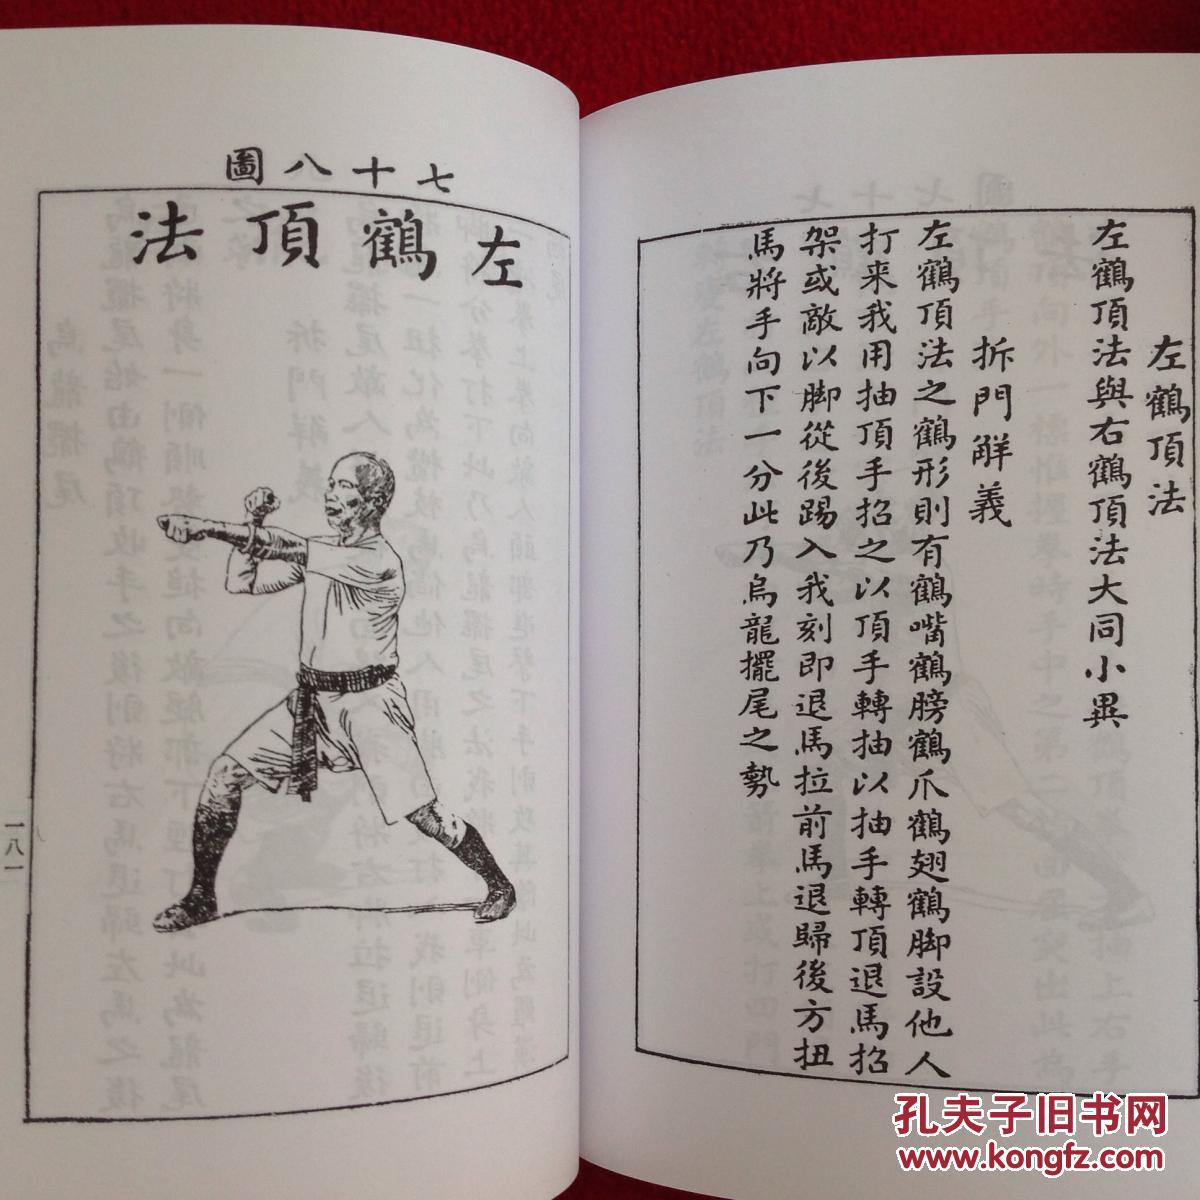 左鶴頂法
左鶴頂法與右鶴頂法大同小異
拆門解義
左鶴頂法之鶴形則有鶴嘴鶴膀鶴爪鶴翅鶴脚設他人
打来我用抽頂手招之以頂手轉抽以抽手轉頂退馬招
架或敵以脚從後踢入我刻即退馬拉前馬退歸後方扭
馬將手向下一分此乃烏龍擺尾之勢
七十八圖
左鶴頂法
一八一
孔夫子旧书网
www.kongfz.com